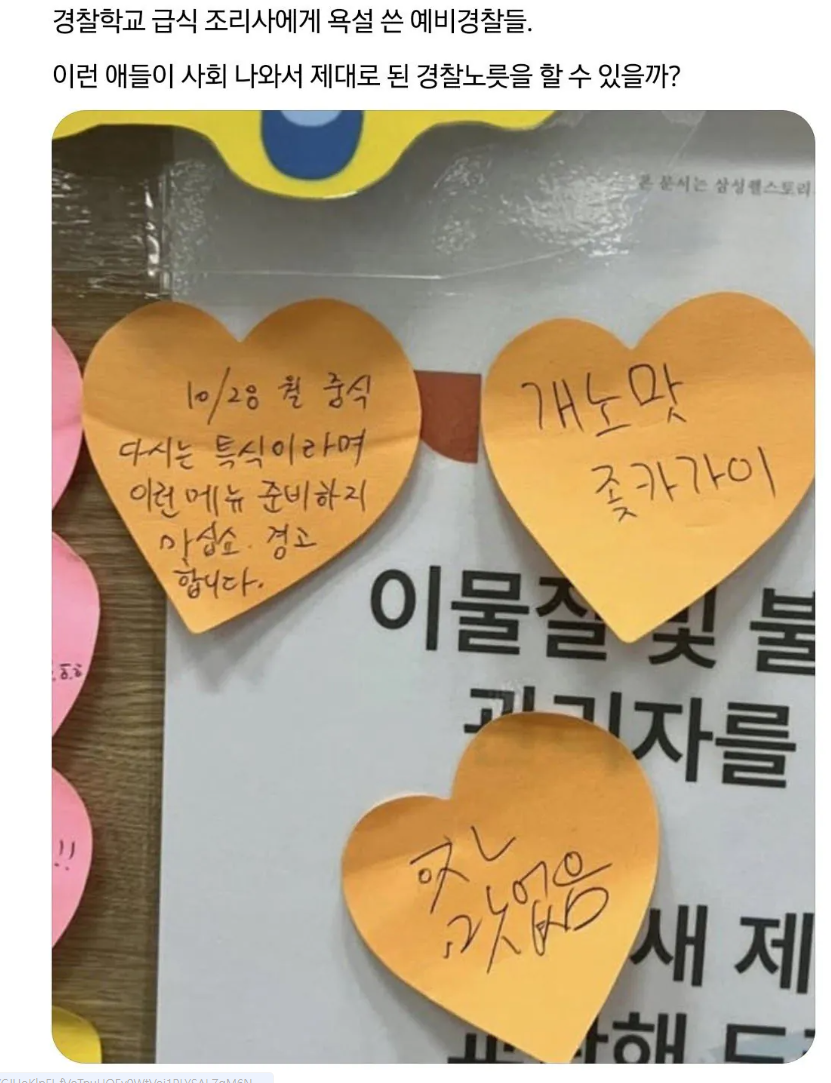 경찰학교 급식 조리사에게 욕설 쓴 예비경찰들.
이런 애들이 사회 나와서 제대로 된 경찰노릇을 할 수 있을까?
본 문서는 삼성웰스토리
10/28 월 중식
다시는 특식이라며
이런 메뉴 준비하지
마십쇼. 경고
합니다.
개노맛
좆카가이
이물질 및 불
관리자를
맛없음
새 제